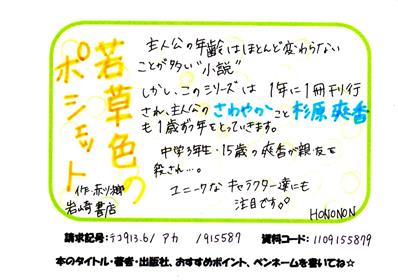 若草色の
ポシェット
作:赤川次郎
岩崎書店
主人公の年齢はほとんど変わらない
ことが多い"小説"
しかし、このシリーズは 1年に1冊刊行
され、主人公の さわやかこと 杉原爽香
も1歳ずつ年をとっていきます。
中学3年生・15歳の爽香が親友を
殺され…。
ユニークなキャラクター達にも
注目です。
HONONON
請求記号:テコ913.6/ アカ /915587 資料コード:1109155879
本のタイトル・著者・出版社、おすすめポイント、ペンネームを書いてね☆